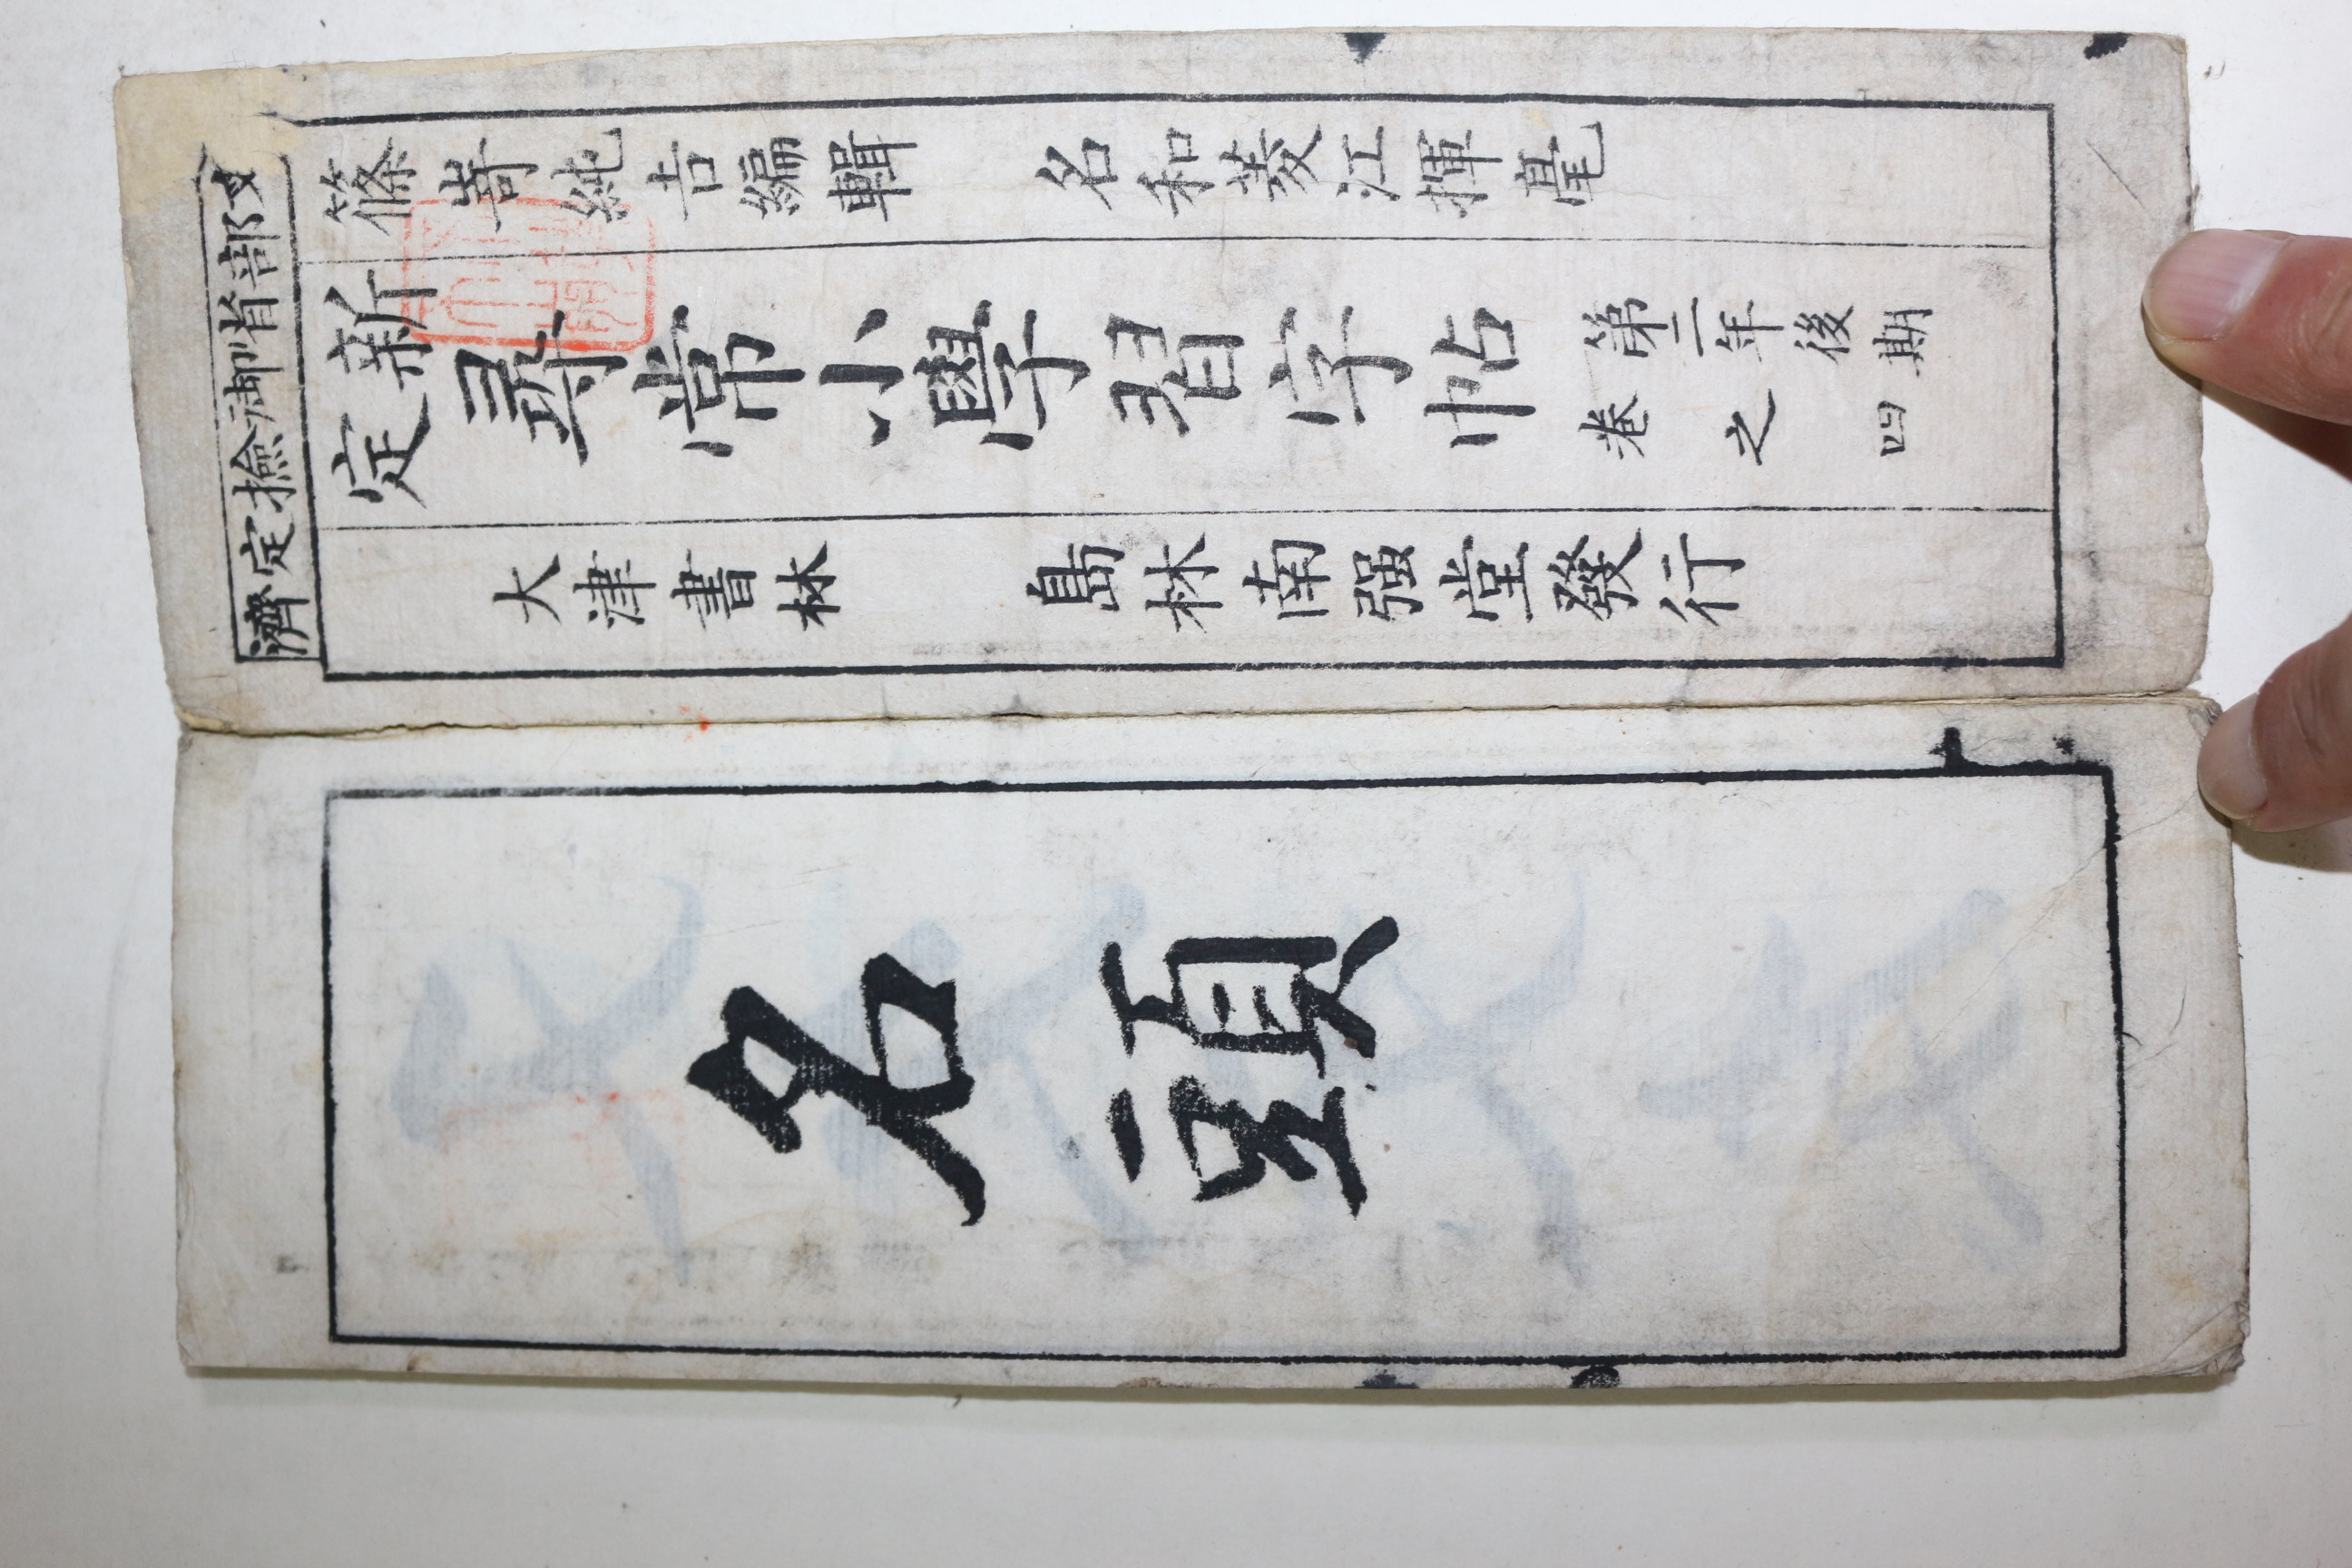 文部省御撿定濟
篠嵜純吉編輯 名和菱江揮毫
新定尋常小學習字帖 第二年後期
卷之四
大津書林 島林南强堂發行
名頭